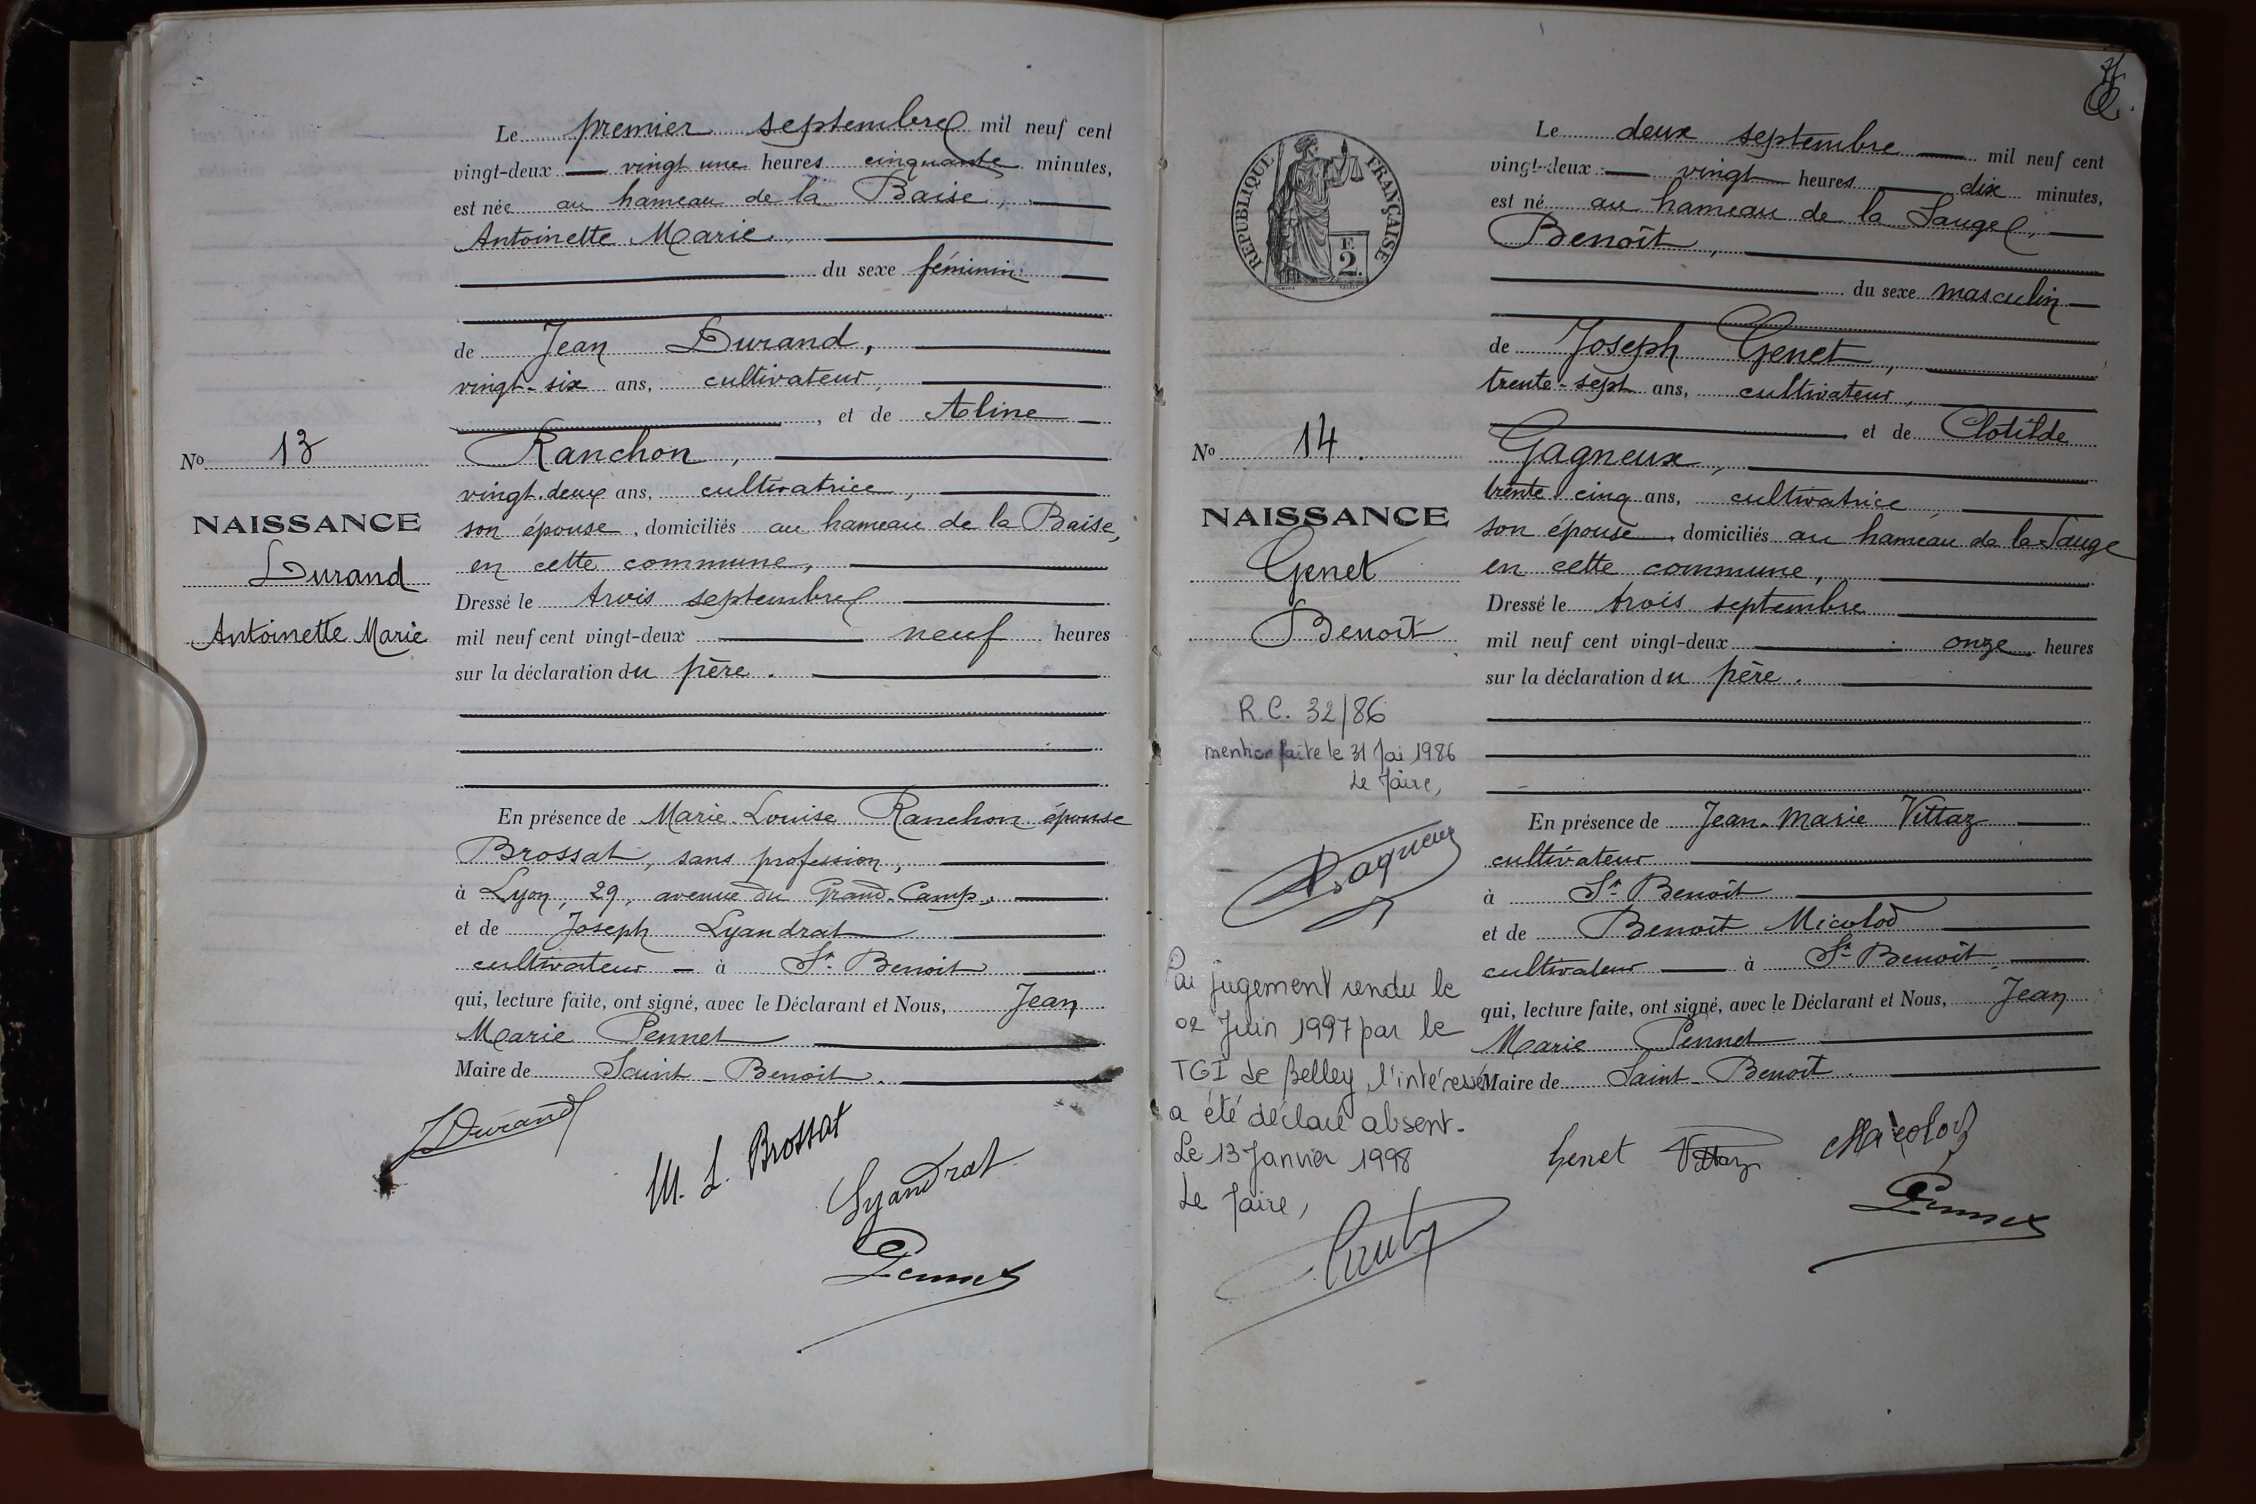 Le premier septembre mil neuf cent
vingt-deux vingt une heures cinquante minutes,
est née au hameau de la Baise,
Antoinette Marie,
du sexe féminin
de Jean Durand,
vingt-six ans, cultivateur,
, et de Aline
Ranchon,
vingt-deux ans, cultivatrice,
son épouse, domiciliés au hameau de la Baise,
en cette commune,
Dressé le trois septembre
mil neuf cent vingt-deux neuf heures
sur la déclaration du père.
En présence de Marie-Louise Ranchon épouse
Brossat, sans profession,
à Lyon, 29, avenue du Grand-Camp,
et de Joseph Lyandrat
cultivateur - à St. Benoit
qui, lecture faite, ont signé, avec le Déclarant et Nous, Jean
Marie Pennet
Maire de Saint-Benoit.
No 13
NAISSANCE
Durand
Antoinette Marie
JDurand
M. L. Brossat
Lyandrat
Pennet
Le deux septembre mil neuf cent
vingt-deux vingt heures dix minutes,
est né au hameau de la Sauge,
Benoît,
du sexe masculin
de Joseph Genet,
trente-sept ans, cultivateur,
et de Clotilde
Gagneux,
trente-cinq ans, cultivatrice,
son épouse, domiciliés au hameau de la Sauge
en cette commune,
Dressé le trois septembre
mil neuf cent vingt-deux onze heures
sur la déclaration du père.
En présence de Jean-Marie Vittaz
cultivateur
à St. Benoît
et de Benoît Micolod
cultivateur à St. Benoît,
qui, lecture faite, ont signé, avec le Déclarant et Nous, Jean
Marie Pennet
Maire de Saint-Benoît.
RÉPUBLIQUE FRANÇAISE
F.
2.
No 14.
NAISSANCE
Genet
Benoît
R.C. 32/86
mention faite le 31 Mai 1986
Le Maire,
Par jugement rendu le
02 Juin 1997 par le
TGI de Belley, l'intéressé
a été déclaré absent.
Le 13 Janvier 1998
Le Maire,
Genet Vittaz Micolod
Pennet